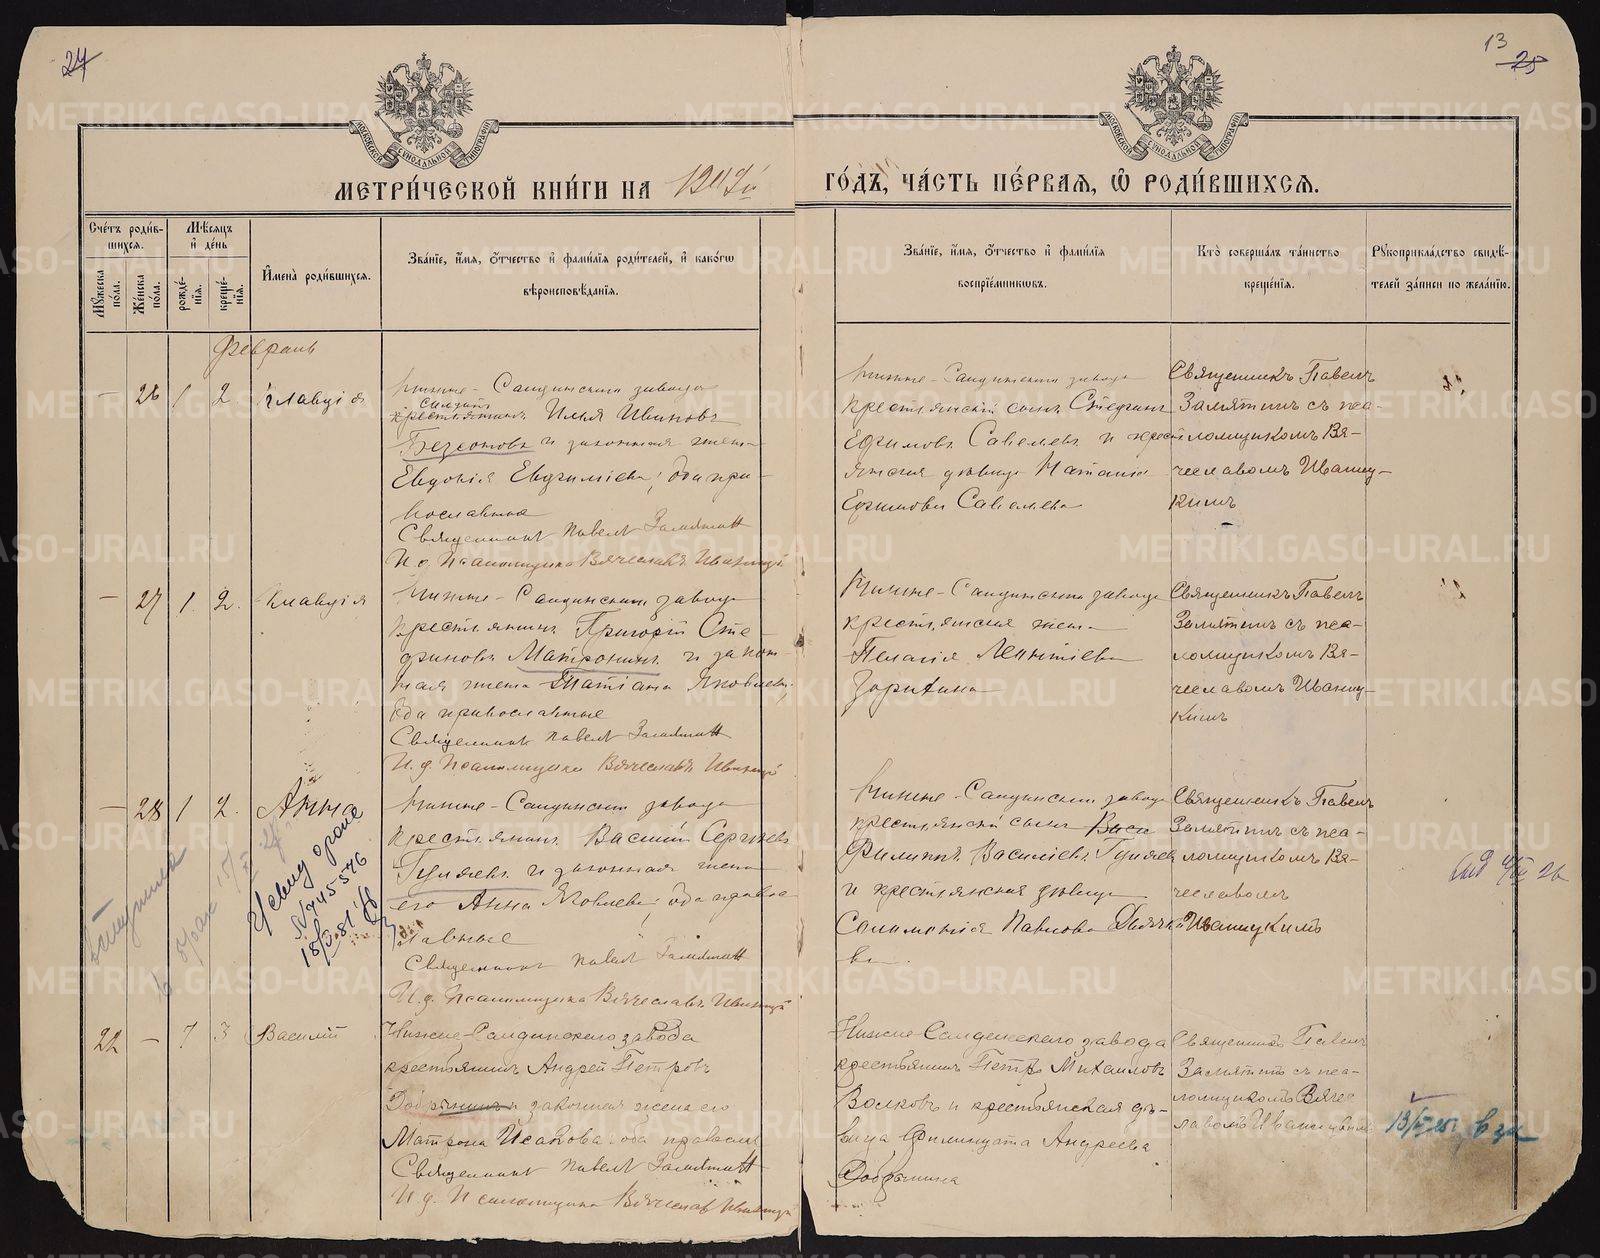 24
13
25
МЕТРИ́ЧЕСКОЙ КНИ́ГИ НА
ГО́ДЪ, ЧА́СТЬ ПЕ́РВАЯ, Ѽ РОДИ́ВШИХСЯ.
Сче́тъ роди́в-
шихся.
Мѣ́сяцъ
и҆ де́нь
Мꙋ́жеска
по́ла.
Же́нска
по́ла.
рожде́-
нїя.
креще́-
нїя.
И҆мена̀ роди́вшихся.
Зва́нїе, и҆́мя, ѻ҆́тчество и҆ фами́лїя роди́телей, и҆ како́гѡ
вѣроисповѣ́данїя.
Зва́нїе, и҆́мя, ѻ҆́тчество и҆ фами́лїя
воспрїе́мникѡвъ.
Кто̀ соверша́лъ та́инство
креще́нїя.
Рꙋкоприкла́дство свидѣ́-
телей за́писи по жела́нїю.
Февраль
— 26 1 2 Клавдія
Нижне-Салдинскаго завода
крестьянинъ Илья Ивановъ
Безсоновъ и законная жена
Евдокія Евфиміева; оба пра-
вославные
Священникъ Павелъ Замятинъ
И. д. Псаломщика Вячеславъ Иваницкій
Нижне-Салдинскаго завода
крестьянскій сынъ Стефанъ
Ефимовъ Савельевъ и крест-
янская дѣвица Наталія
Ефимова Савельева
Священникъ Павелъ
Замятинъ съ пса-
ломщикомъ Вя-
чеславомъ Иваниц-
кимъ
— 27 1 2. Клавдія
Нижне-Салдинскаго завода
крестьянинъ Григорій Сте-
фановъ Матронинъ и закон-
ная жена Татіана Яковлева;
оба православные
Священникъ Павелъ Замятинъ
И. д. Псаломщика Вячеславъ Иваницкій
Нижне-Салдинскаго завода
крестьянская жена
Пелагія Леонтіева
Зорихина
Священникъ Павелъ
Замятинъ съ пса-
ломщикомъ Вя-
чеславомъ Иваниц-
кимъ
— 28 1 2. Анна
Нижне-Салдинскаго завода
крестьянинъ Василій Сергѣевъ
Гуляевъ и законная жена
его Анна Яковлева; оба право-
славные
Священникъ Павелъ Замятинъ
И. д. Псаломщика Вячеславъ Иваницкій
Нижне-Салдинскаго завода
крестьянскій сынъ
Филиппъ Васильевъ Гуляевъ
и крестьянская дѣвица
Соломонія Павлова
ва.
Священникъ Павелъ
Замятинъ съ пса-
ломщикомъ Вя-
чеславомъ
Иваницкимъ
N745576
22 — 1 3 Василій
Нижне-Салдинскаго завода
крестьянинъ Андрей Петровъ
законная жена его
Матрона Исакова оба правосл.
Священникъ Павелъ Замятинъ
И. д. Псаломщика Вячеславъ Иваницкій
Нижне-Салдинскаго завода
крестьянинъ Петръ Михаиловъ
Волковъ и крестьянская дѣ-
вица Филицата Андреева
Добрынина
Священникъ Павелъ
Замятинъ съ пса-
ломщикомъ Вяче-
славомъ Иваницкимъ
METRIKI.GASO-URAL.RU